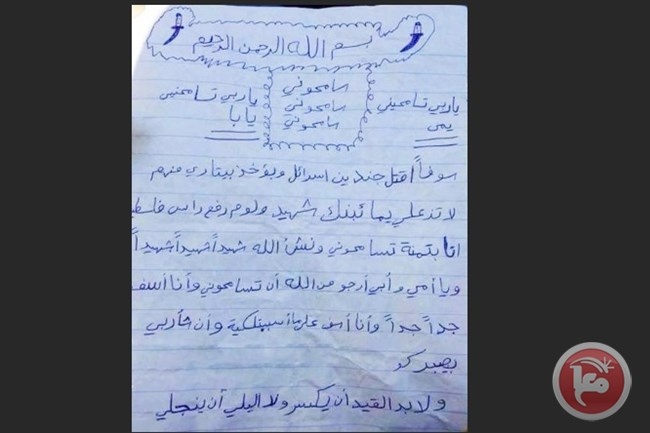 بسم الله الرحمن الرحيم
ياربي تسامحيني
يمى
سامحوني
سامحوني
سامحوني
ياربي تسامحني
يابا
سوفاً اقتل جند بين اسرائل وبؤخذ بيتاري منهم
لا تزعلي يما ئبنك شهيد ولوم رفع راس فلسط
انا بتمنة تسامحوني ونشأ الله شهيداً شهيداً شهيداً
ويا أمي وأبي أرجو من الله أن تسامحوني وأنا أسف
جداً جداً وأنا أسف على
بيصبركو
ولا بد القيد أن يكسر ولا اليلي أن ينجلي
معا